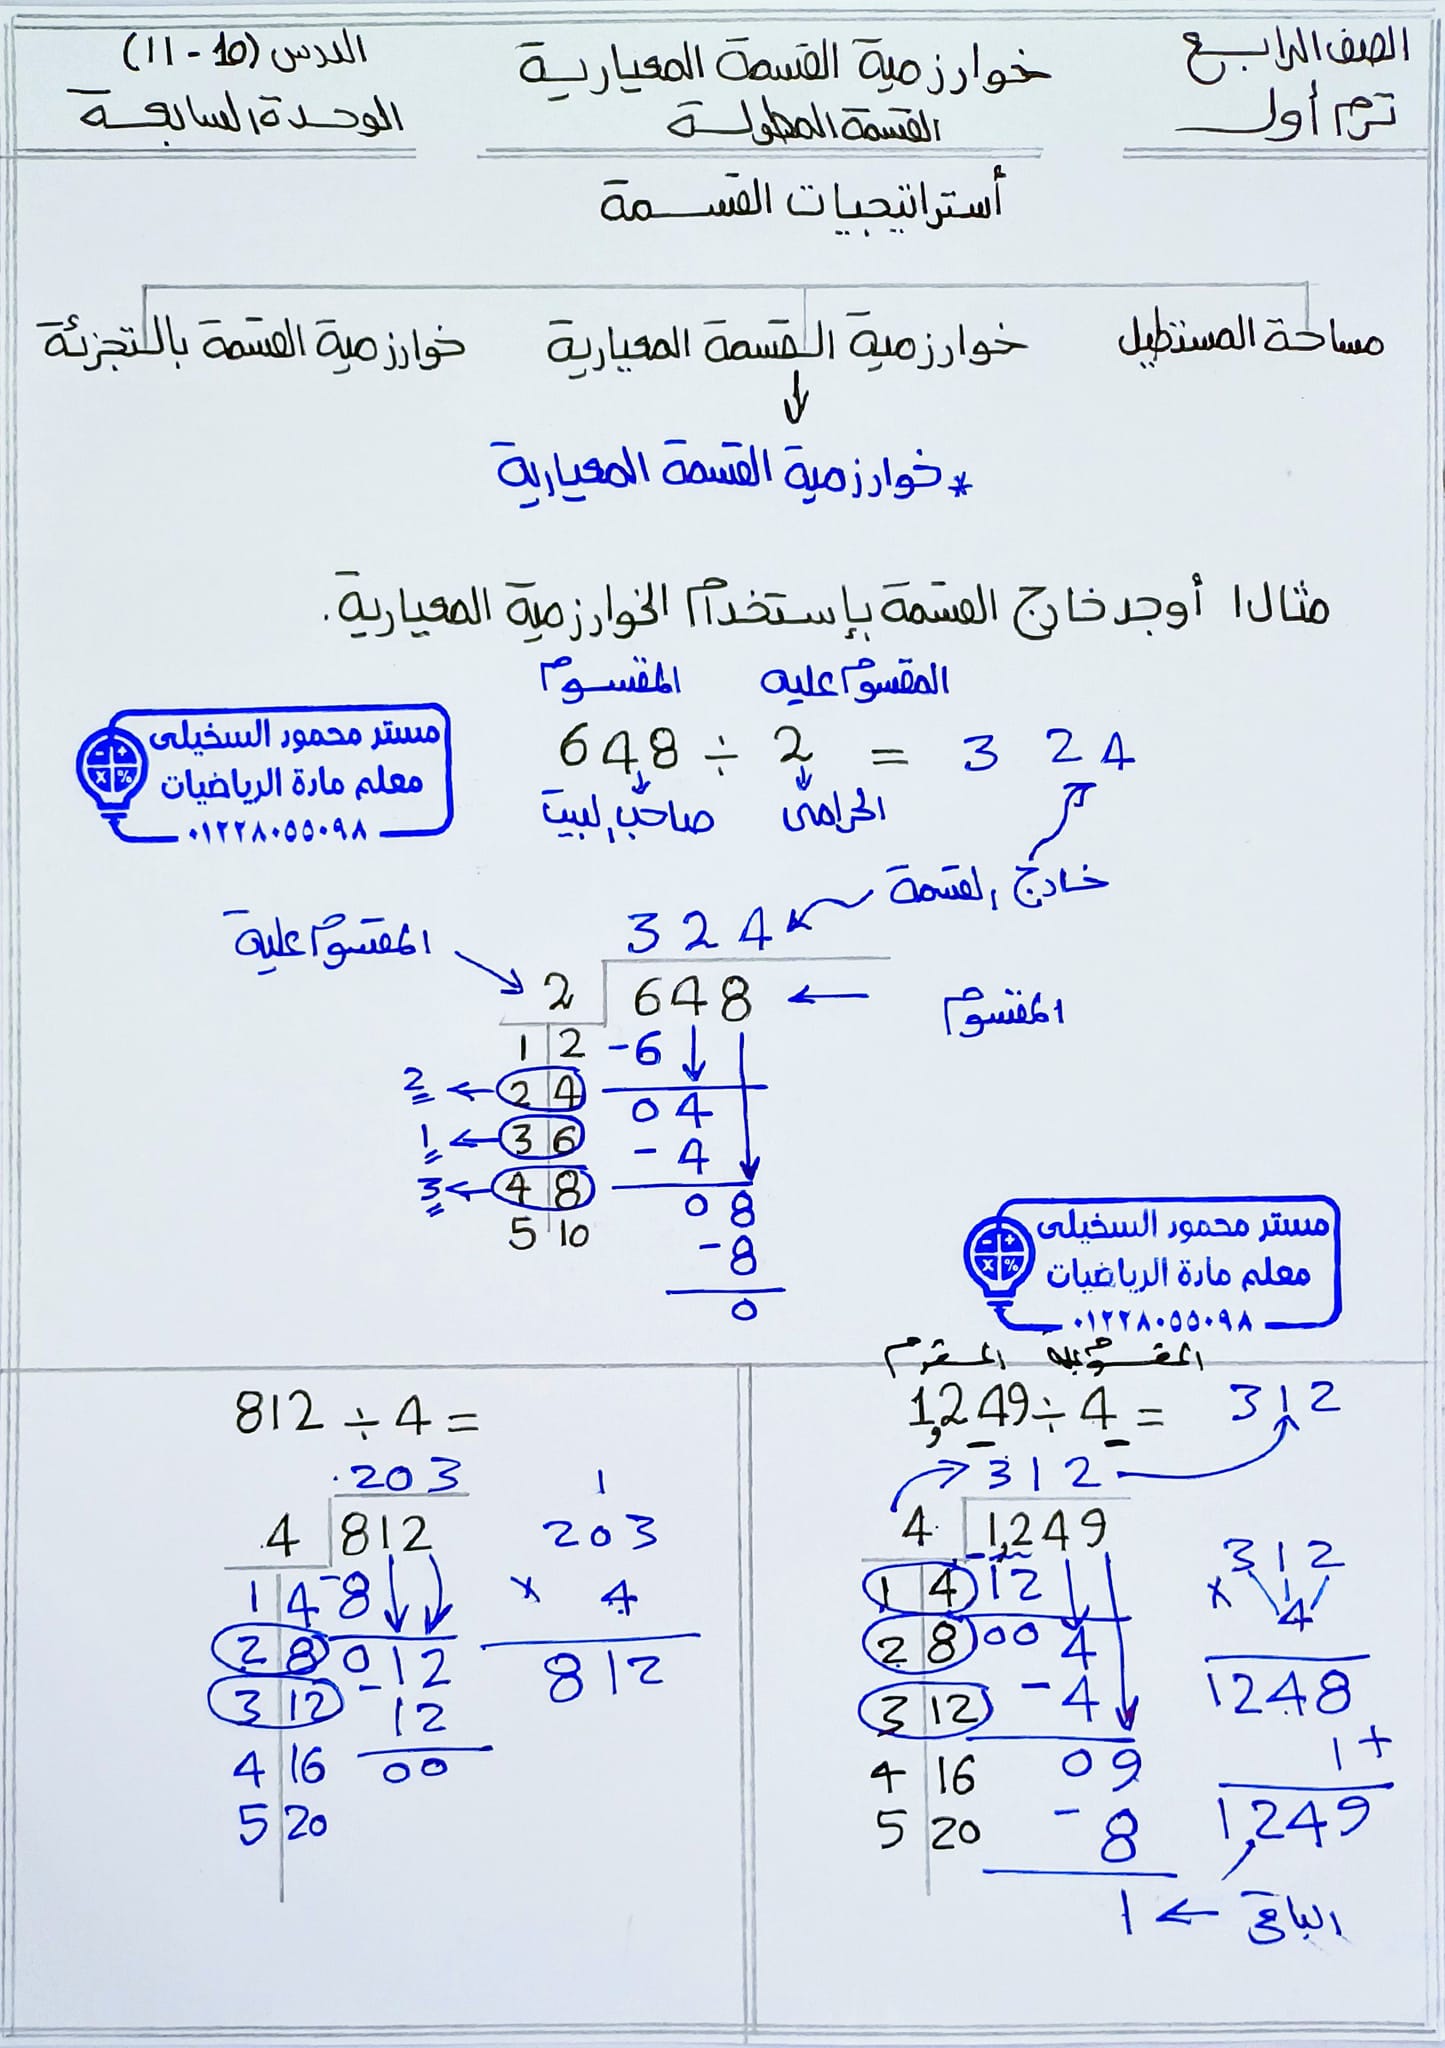 الصف الرابع
ترم أول
خوارزمية القسمة المعيارية
القسمة المطولة
الدرس (10 - 11)
الوحدة السابعة
أستراتيجيات القسمة
مساحة المستطيل
خوارزمية القسمة المعيارية
خوارزمية القسمة بالتجزئة
* خوارزمية القسمة المعيارية
مثال 1 أوجد خارج القسمة بإستخدام الخوارزمية المعيارية.
المقسوم المقسوم عليه
648 ÷ 2 = 324
صاحب البيت الحرامى
مستر محمود السخيلى
معلم مادة الرياضيات
٠١٢٢٨٠٥٥٠٩٨
خارج القسمة
324
المقسوم علية
2 648
المقسوم
1 2 -6
2 ← 2 4 04
1 ← 3 6 - 4
3 ← 4 8 08
5 10 -8
0
مستر محمود السخيلى
معلم مادة الرياضيات
٠١٢٢٨٠٥٥٠٩٨
المقسوم المقسوم عليه
1,249 ÷ 4 = 312
312
4 1,249
1 4 -12
2 8 00 4
3 12 - 4
4 16 09
5 20 - 8
1 ← الباقى
312
× 4
1248
1 +
1,249
812 ÷ 4 =
203
4 812
1 4 -8
2 8 012
3 12 - 12
4 16 00
5 20
1
203
× 4
812